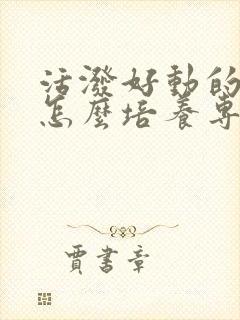 活潑好動的
怎麼培養專
賈書章